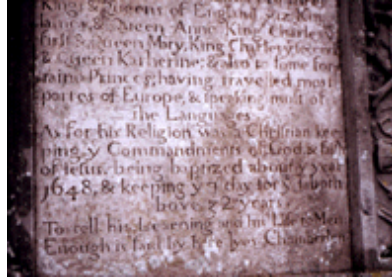 Kings & Queens of England, viz King
James, & Queen Anne King Charles y
first & Queen Mary, King Charles y second
& Queen Katherine; & also to some for-
raine Princes; having travelled most
partes of Europe, & speaking most of
the Languages
As for his Religion was a Christian kee-
ping y Commandments of God & faith
of Jesus, being baptized about y year
1648, & keeping y 7 day for y saboth
above 32 years
To tell his and his Life &
Enough is said by here lyes Chamberlen